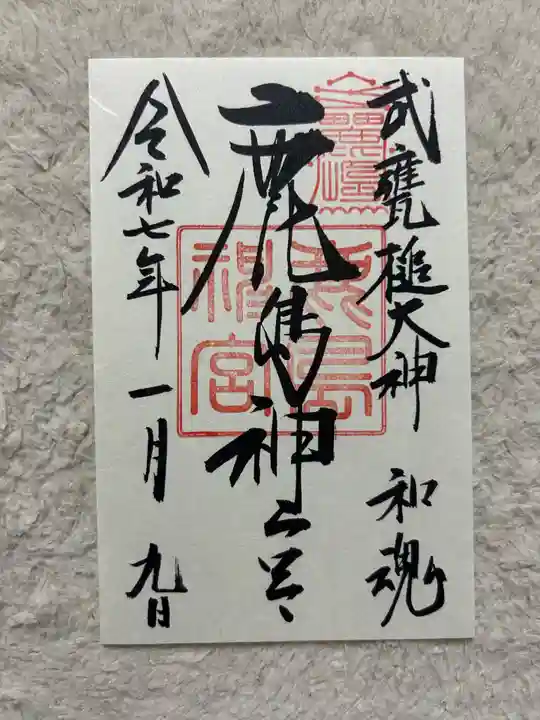 武甕槌大神 和魂
鹿島神宮
鹿島神宮
令和七年一月九日